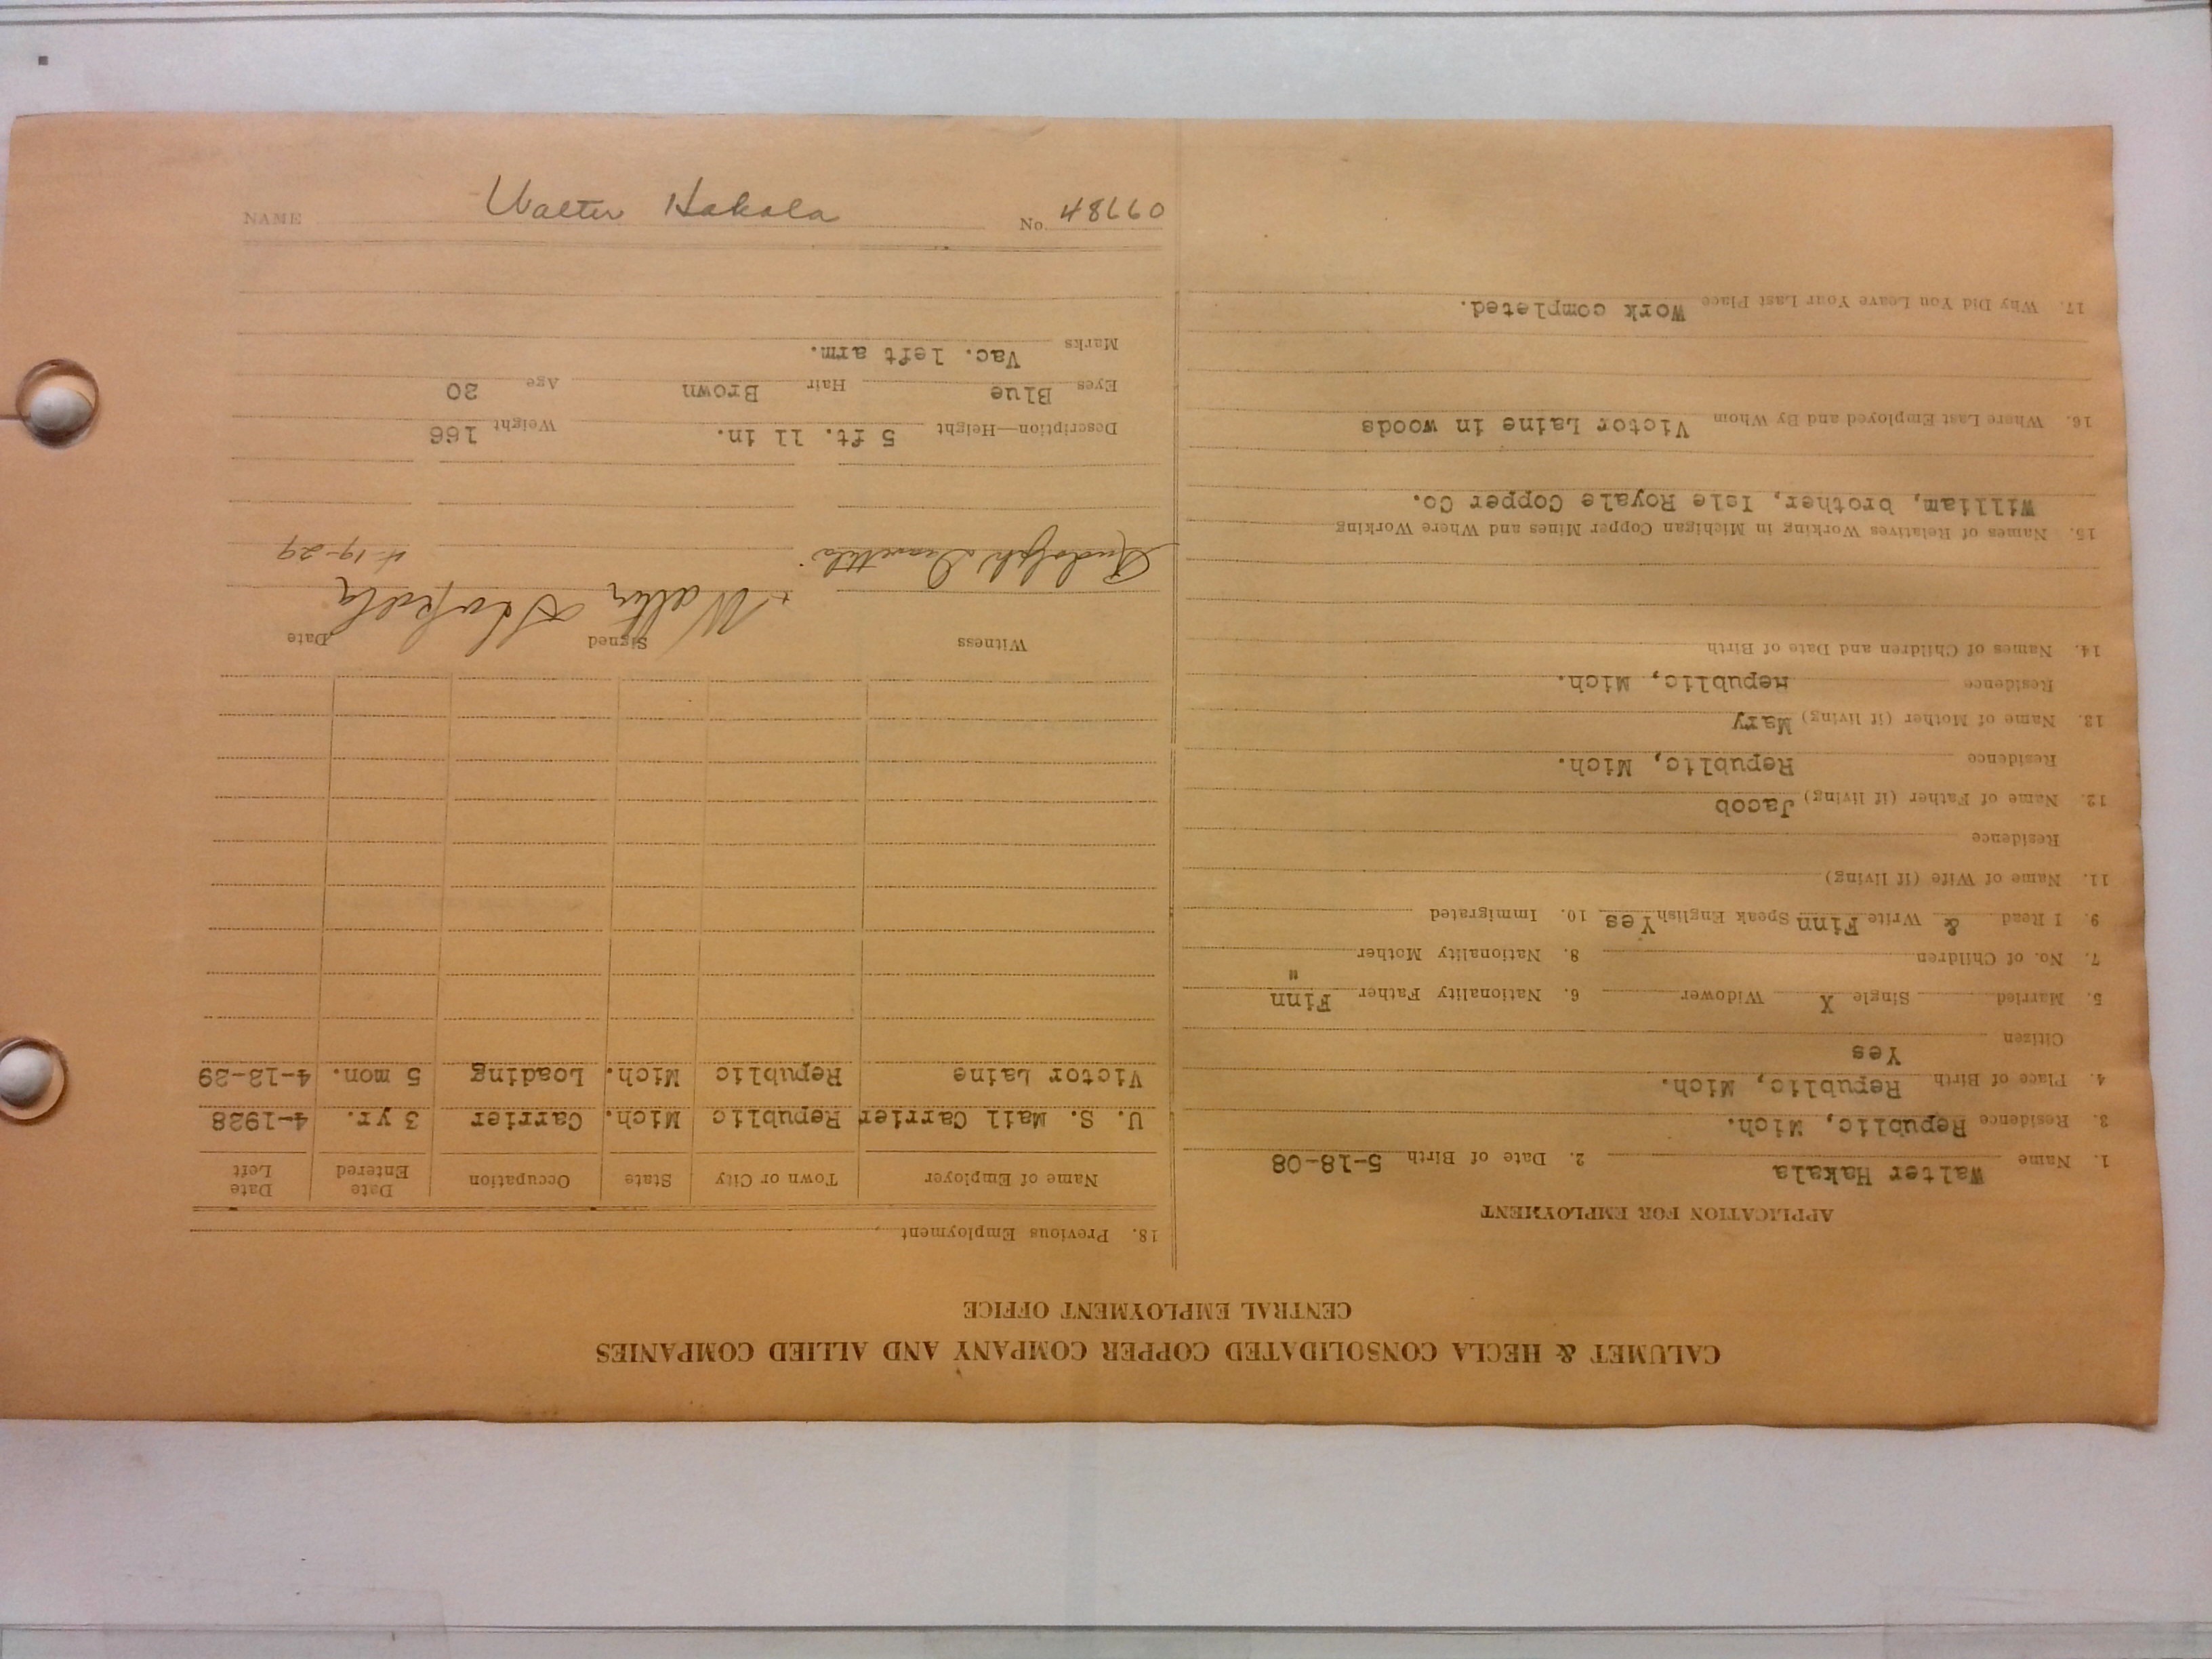 CALUMET & HECLA CONSOLIDATED COPPER COMPANY AND ALLIED COMPANIES
CENTRAL EMPLOYMENT OFFICE
APPLICATION FOR EMPLOYMENT
1. Name Walter Hakala 2. Date of Birth 5-18-08
3. Residence Republic, Mich.
4. Place of Birth Republic, Mich.
Citizen Yes
5. Married Single X Widower 6. Nationality Father Finn
7. No. of Children 8. Nationality Mother "
9. I Read & Write Finn Speak English Yes 10. Immigrated
11. Name of Wife (if living)
Residence
12. Name of Father (if living) Jacob
Residence Republic, Mich.
13. Name of Mother (if living) Mary
Residence Republic, Mich.
14. Names of Children and Date of Birth
15. Names of Relatives Working in Michigan Copper Mines and Where Working
William, brother, Isle Royale Copper Co.
16. Where Last Employed and By Whom Victor Laine in woods
17. Why Did You Leave Your Last Place Work completed.
18. Previous Employment
Name of Employer Town or City State Occupation Date Entered Date Left
U. S. Mail Carrier Republic Mich. Carrier 3 yr. 4-1928
Victor Laine Republic Mich. Loading 5 mon. 4-13-29
Witness Signed Date
Rudolph + Walter Hakala 4-19-29
Description—Height 5 ft. 11 in. Weight 166
Eyes Blue Hair Brown Age 20
Marks Vac. left arm.
NAME Walter Hakala No. 48660